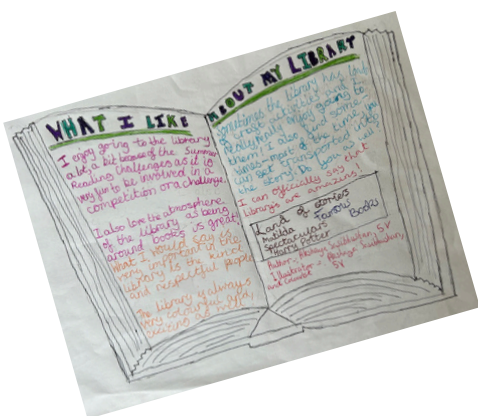 WHAT I LIKE
I enjoy going to the library
a lot, a bit because of the Summer
Reading Challenges as it is
very fun to be involved in a
competition or a challenge.
I also love the atmosphere
of the library as being
around books is great!
What I would say is
very important of the
library is the kind
and respectful people
The library is always
very colourful and
ABOUT MY LIBRARY
Sometimes the library has fond
craft activity and I
really really enjoy going to
them! I also find some
times most of the time you
can get transported into
the story! Do you as well
I can officially say that
libraries are amazing!
Land of stories
Matilda
Famous
Books
Spectaculars
Harry Potter
Author:
Illustrator:
and